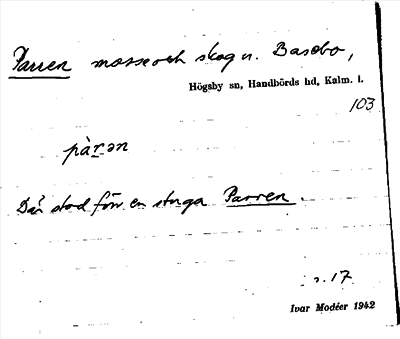 Parren mosse och skog n. Basebo,
Högsby sn, Handbörds hd, Kalm. l.
103
pàr̠ən
Där stod förr en stuga Parren.
s. 17
Ivar Modéer 1942